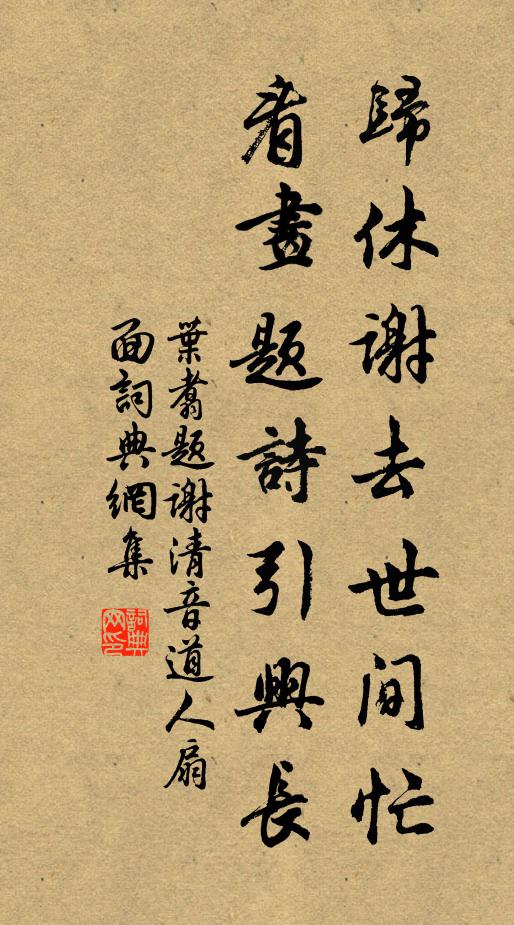 歸休謝去世间忙
看畫题詩引興長
葉翥题謝清音道人扇
面詞典網集
詞典网印